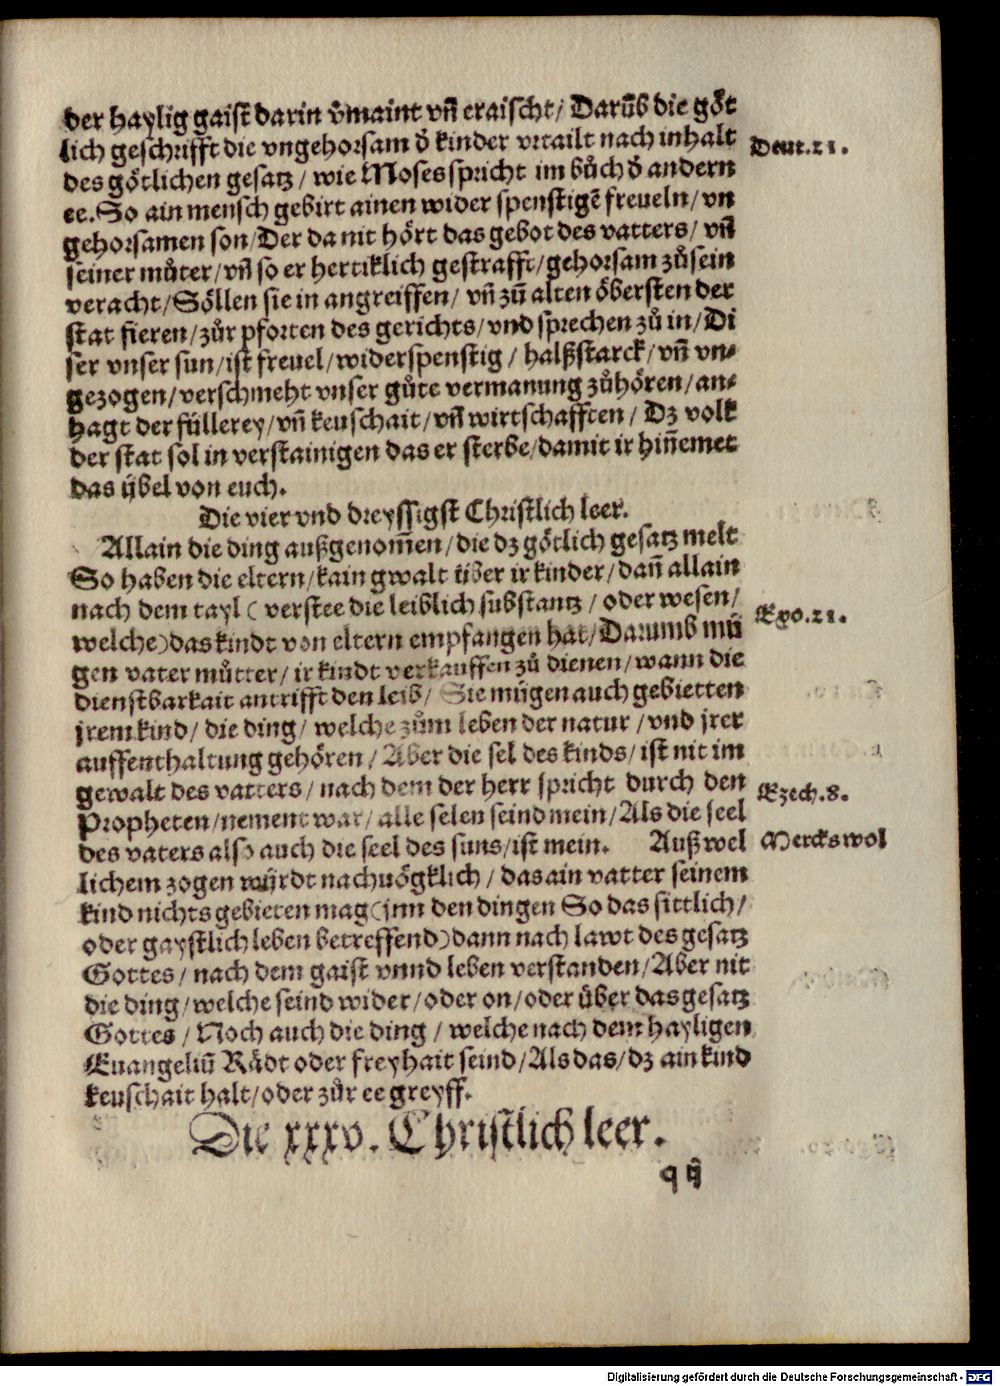 der haylig gaist darin v̊maint vn̄ eraischt/ Darūb die göt
lich geschrifft die vngehorsam d̊ kinder vrtailt nach inhalt
Deut.21.
des götlichen gesatz/ wie Moses spricht im bůch d̊ andern
ee. So ain mensch gebirt ainen wider spenstigē freueln/ vn
gehorsamen son/ Der da nit hört das gebot des vatters/ vn̄
seiner můter/ vn̄ so er hertiklich gestrafft/ gehorsam zůsein
veracht/ Söllen sie in angreiffen/ vn̄ zū alten öbersten der
stat fieren/ zůr pforten des gerichts/ vnd sprechen zů in/ Di
ser vnser sun/ ist freuel/ widerspenstig/ halßstarck/ vn̄ vn⸗
gezogen/ verschmeht vnser gůte vermanung zůhören/ an⸗
hagt der füllerey/ vn̄ keuschait/ vn̄ wirtschafften/ Dz volk
der stat sol in verstainigen das er sterbe/ damit ir hin̄emet
das übel von euch.
Die vier vnd dreyssigst Christlich leer.
Allain die ding außgenom̄en/ die dz götlich gesatz melt
So haben die eltern/ kain gwalt über ir kinder/ dan̄ allain
nach dem tayl ( verstee die leiblich substantz/ oder wesen/
Exo.21.
welche) das kindt von eltern empfangen hat/ Darumb mü
gen vater můtter/ ir kindt verkauffen zů dienen/ wann die
dienstbarkait antrifft den leib/ Sie mügen auch gebietten
jrem kind/ die ding/ welche zům leben der natur/ vnd jrer
auffenthaltung gehören/ Aber die sel des kinds/ ist nit im
gewalt des vatters/ nach dem der herr spricht durch den
Ezech.8.
Propheten/ nement war/ alle selen seind mein/ Als die seel
des vaters also auch die seel des suns/ ist mein. Auß wel
Merckswol
lichem zogen würdt nachuögklich/ das ain vatter seinem
kind nichts gebieten mag (jnn den dingen So das sittlich/
oder gaystlich leben betreffend) dann nach lawt des gesatz
Gottes/ nach dem gaist vnnd leben verstanden/ Aber nit
die ding/ welche seind wider/ oder on/ oder über das gesatz
Gottes/ Noch auch die ding/ welche nach dem hayligen
Euangeliū Rädt oder freyhait seind/ Als das/ dz ain kind
keuschait halt/ oder zůr ee greyff.
Die xxxv. Christlich leer.
q ij
Digitalisierung gefördert durch die Deutsche Forschungsgemeinschaft - DFG